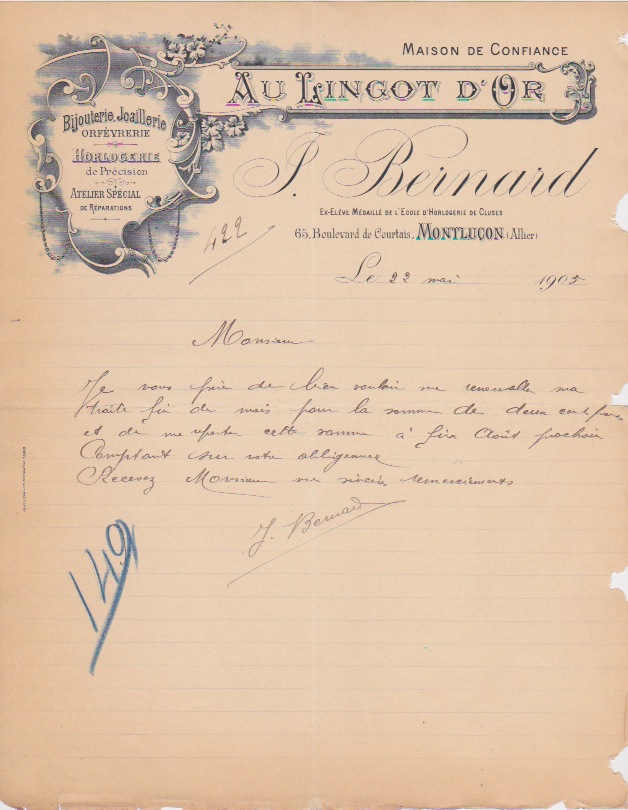 MAISON DE CONFIANCE
AU LINGOT D'OR
Bijouterie, Joaillerie
ORFÈVRERIE
HORLOGERIE
de Précision
ATELIER SPÉCIAL
DE RÉPARATIONS
J. Bernard
EX-ELÈVE MÉDAILLÉ DE L'ECOLE D'HORLOGERIE DE CLUSES
65, Boulevard de Courtais, MONTLUÇON (Allier)
422
Le 22 mai 1905
Monsieur
Je vous prie de bien vouloir me renouveller ma
traite fin de mois pour la somme de deux cent francs
et de me reporter cette somme à fin Août prochain
Comptant sur votre obligeance
Recevez Monsieur me sincère remerciements
J. Bernard
149